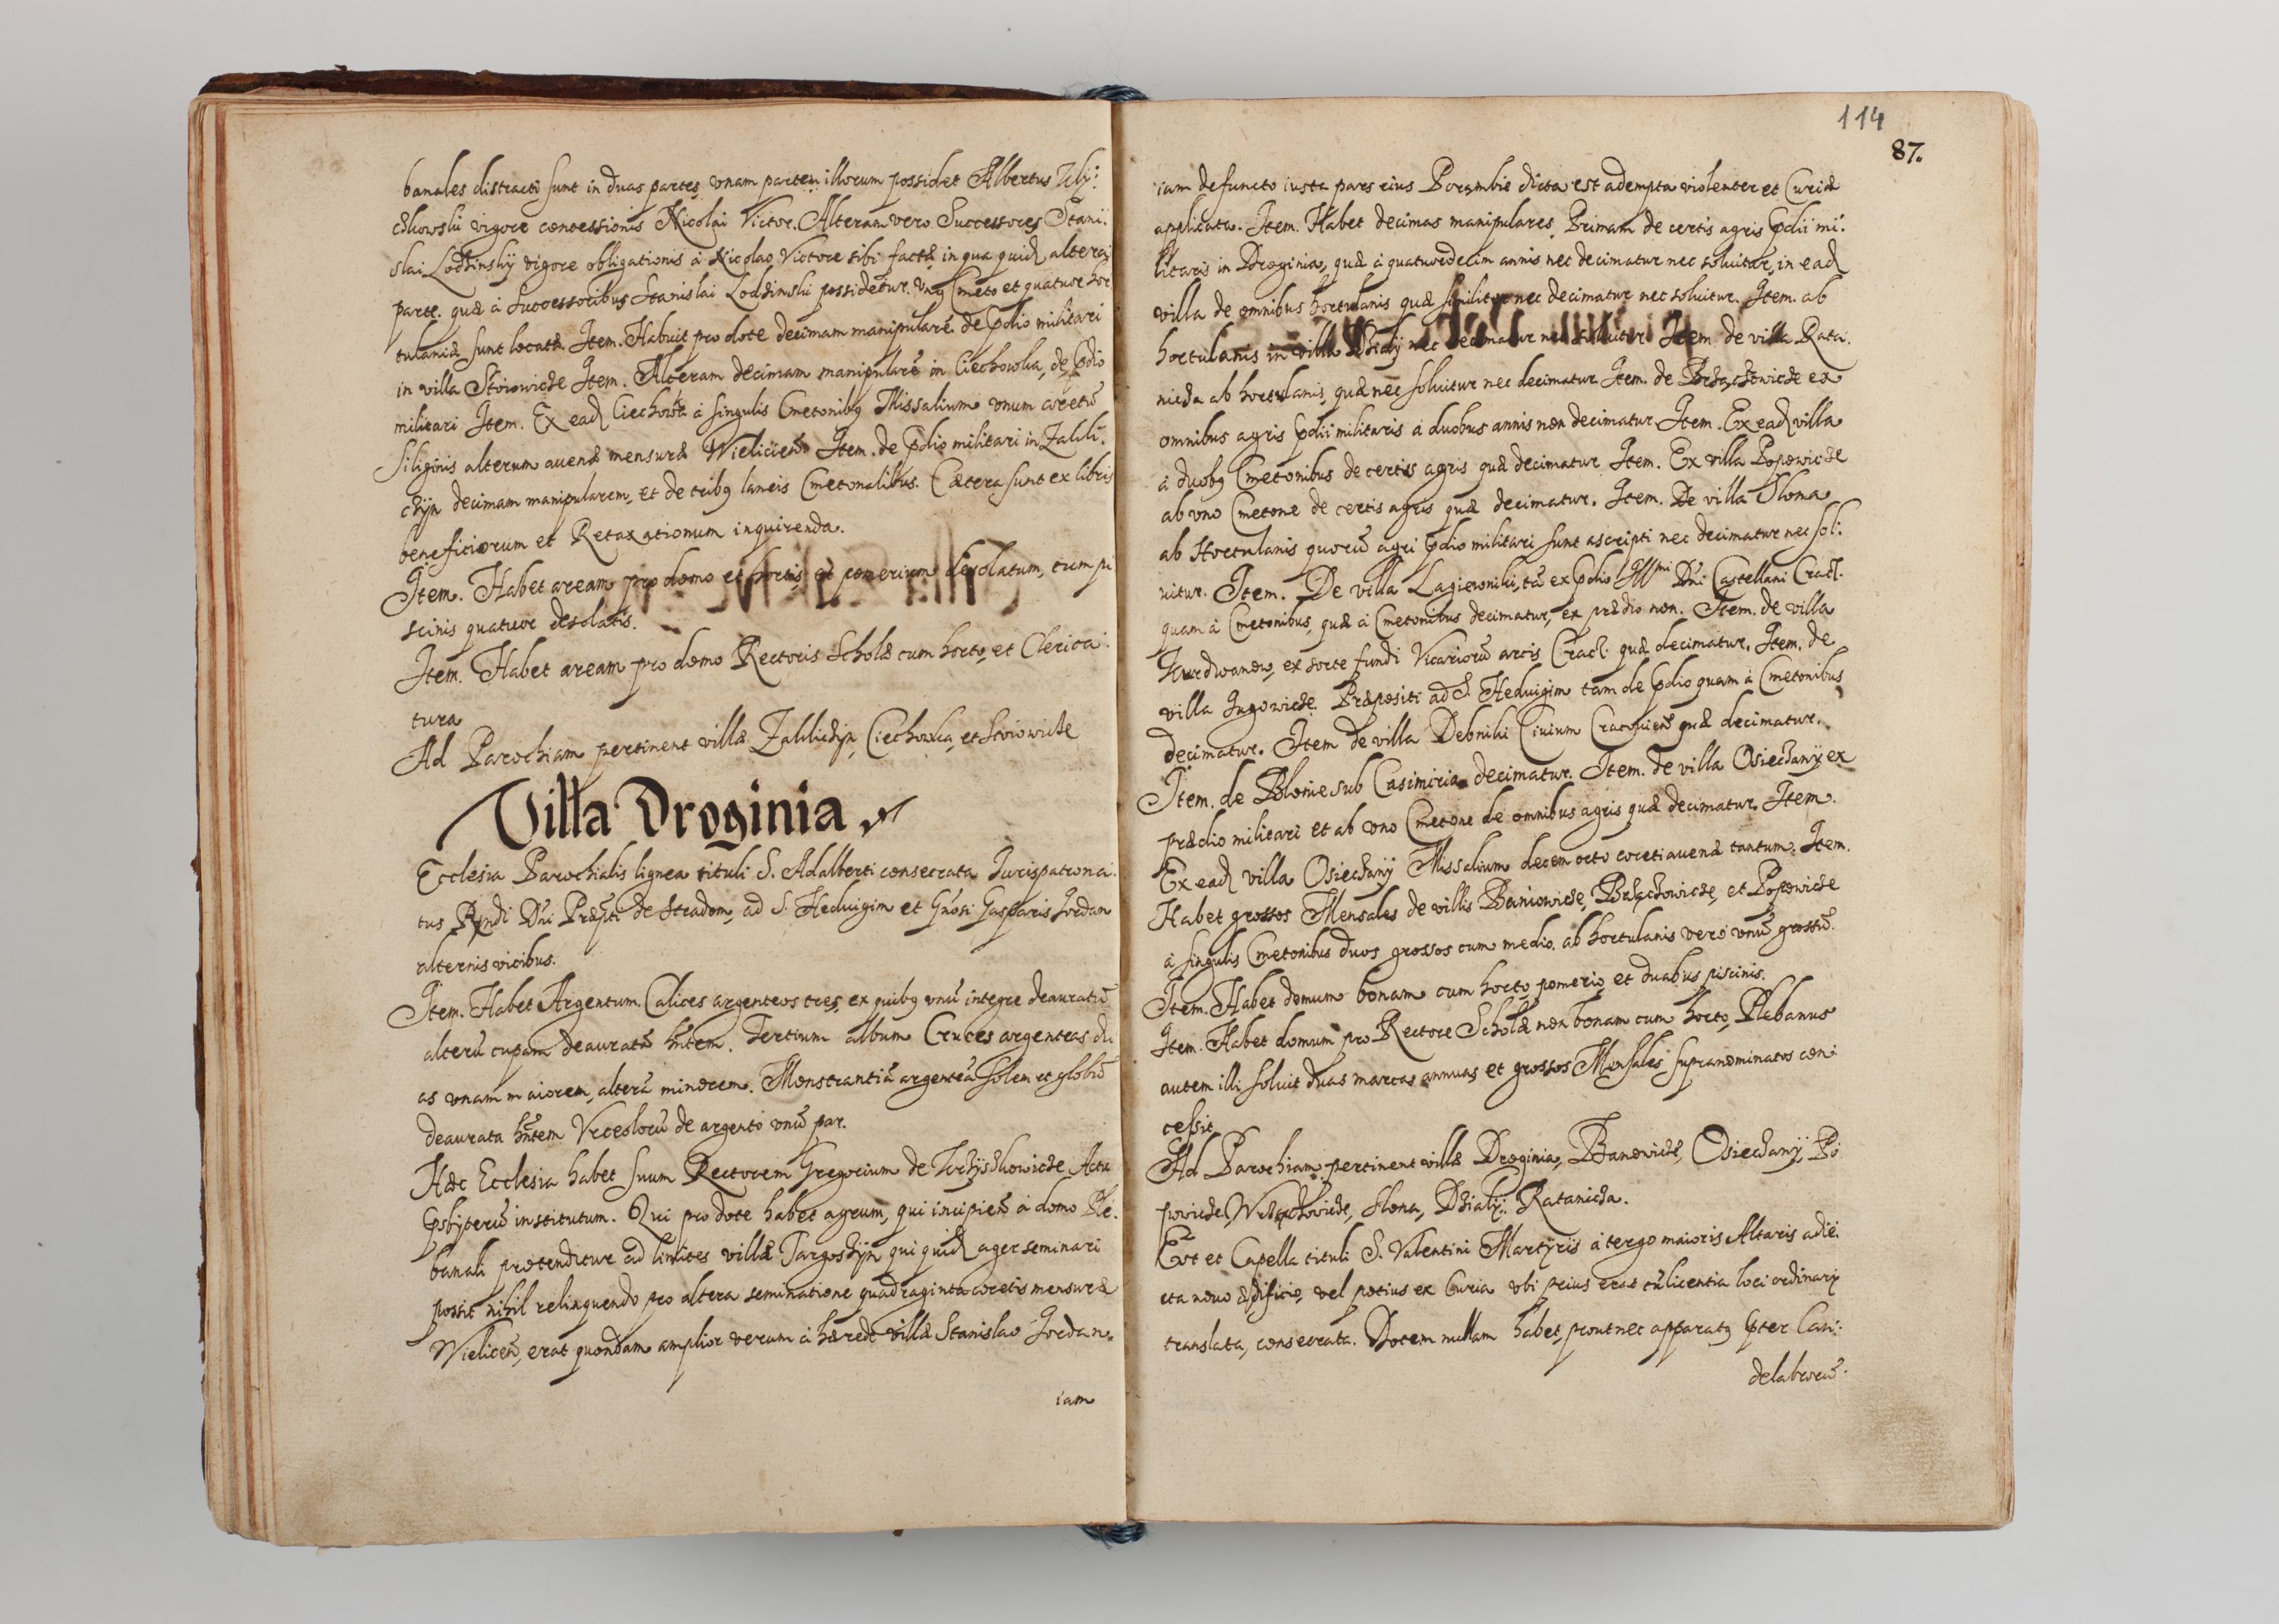 banales distracti sunt in duas partes, vnam partem illorum possidet Albertus
chowski vigore concessionis Nicolai Victor. Alteram vero Successores Stani:
slai Lodzinskÿ vigore obligationis à Nicolao Victore sibi factæ, in qua quidę altera
parte. quæ à Successoribus Stanislai Lodzinskii possidetur. vnꝰ Cmeto et quatuor hor
tulaniæ sunt locatæ. Item. Habuit pro dote decimam manipularē de p̱dio militari
in villa Stoiowicze Item. Alteram decimam manipularē in Ciechowka, de p̱dio
militari Item. Ex eadę Ciechowka à singulis Cmetonibꝰ Missalium vnum coretū
siliginis alterum auenæ mensuræ Wielicień. Item. de p̱dio militari in Zakli:
czÿn decimam manipularem, et de tribꝰ laneis Cmetonalibus. Cætera sunt ex libris
beneficiorum et Retaxationum inquirenda.
Item. Habet aream pro domo et hortis, et pomerium desolatum, cum pi
scinis quatuor desolatis.
Item. Habet aream pro domo Rectoris Scholæ cum horto, et Clerica:
tura
Ad Parochiam pertinent villæ Zakliczÿn, Ciechowka, et Stoiowicze
Villa Droginia
Ecclesia Parochialis lignea tituli S. Adalberti consecrata Jurispatrona:
tus Rṇdi Dn̄i Præp̄ti de Stradom, ad S. Heduigim et Gn̄osi Gasparis Jordan
alternis vicibus.
Item. Habet Argentum. Calices argenteos tres, ex quibꝰ vnū integre deauratū
alterū cupam deauratā hn̄tem. Tertium album Cruces argenteas du
as vnam maiorem, alterā minorem. Monstrantiā argenteā solem et globū
deaurata hn̄tem Vrceolorū de argento vnū par.
Hæc Ecclesia habet suum Rectorem Gregorium de Actu
p̱sbÿterū institutum. Qui pro dote habet agrum, qui incipień à domo Ple:
banali protenditur ad limites villæ Targoszÿn qui quidę ager seminari
possit nihil relinquendo pro altera seminatione quadraginta coretis mensuræ
Wielicień, erat quondam amplior verum à hærede villæ Stanislao Jordan.
iam
114
87.
iam defuncto iusta pars eius Porambie dicta est adempta violenter et Curiæ
applicata. Item. Habet decimas manipulares, Primam de certis agris p̱dii mi:
litaris in Droginia, quæ à quatuordecim annis nec decimatur nec soluitur, in eadę
villa de omnibus hortulanis quæ similiter nec decimatur nec soluitur. Item. ab
hortulanis in villa Dzialÿ nec decimatur nec soluitur Item. de villa Rata:
nicza ab hortulanis, quæ nec soluitur nec decimatur. Item. de Brzączowicze ex
omnibus agris p̱dii militaris à duobus annis non decimatur. Item. Ex eadę villa
à duobꝰ Cmetonibus de certis agris quæ decimatur. Item. Ex villa Popowicze
ab vno Cmetone de certis agris quæ decimatur. Item. De villa Slona
ab Hortulanis quorū agri p̱dio militari sunt ascripti nec decimatur nec sol:
uitur. Item. De villa Lagiewniki, tā ex p̱dio Illmi Dn̄i Castellani Crac:
quam à Cmetonibus, quæ à Cmetonibus decimatur, ex prædio non. Item. de villa
Kurdwanow, ex sorte fundi Vicariorū arcis Crac: quæ decimatur. Item. de
villa Jugowicze. Præpositi ad S. Heduigim tam de p̱dio quam à Cmetonibus
decimatur. Item de villa Debniki Ciuium Cracouień quæ decimatur.
Item. de Blonie sub Casimiria decimatur. Item. de villa Osieczanÿ ex
prædio militari et ab vno Cmetone de omnibus agris quæ decimatur. Item.
Ex eadę villa Osieczanÿ Missalium decem octo coreti auenæ tantum. Item.
Habet grossos Mensales de villis Baniowicze, Brzączowicze, et Popowicze
à singulis Cmetonibus duos grossos cum medio. ab hortulanis vero vnū grossū.
Item. Habet domum bonam cum horto, pomerio, et duabus piscinis.
Item. Habet domum pro Rectore Scholæ non bonam cum horto, Plebanus
autem illi soluit duas marcas annuas et grossos Mensales supranominatos con:
cessit.
Ad Parochiam pertinent villæ Droginia, Banowicze, Osieczanÿ, Po
powicze, Slona, Dzialÿ, Ratanicza.
Est et Capella tituli S. Valentini Martÿris à tergo maioris Altaris adie:
cta nouo ædificio, vel potius ex Curia vbi prius erat cū licentia loci ordinarÿ
translata, consecrata. Dotem nullam habet, prout nec apparatꝰ p̱ter Can:
delabrorū.